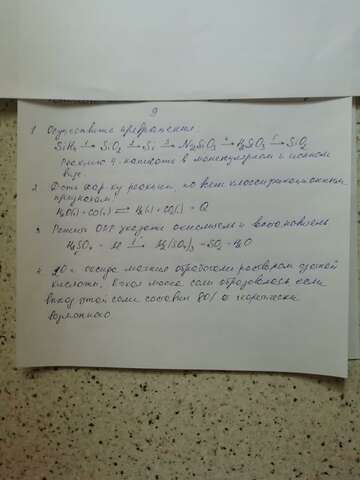 9
1. Осуществите превращения:
SiH₄ →¹ SiO₂ →² Si →³ Na₂SiO₃ →⁴ H₂SiO₃ →⁵ SiO₂
реакцию 4 написать в молекулярном и ионном
виде.
2. Дать хар-ку реакции, по всем классификационным
признакам:
H₂O(г) + CO(г) ⇌ H₂(г) + CO₂(г) - Q
3. Решить ОВР указать окислитель и восстановитель
H₂SO₄ + →
+ SO₂ + H₂O
4. оксида магния обработали раствором азотной
кислоты. Какая масса соли образовалась если
выход этой соли составил 80% от теоретически
возможного.